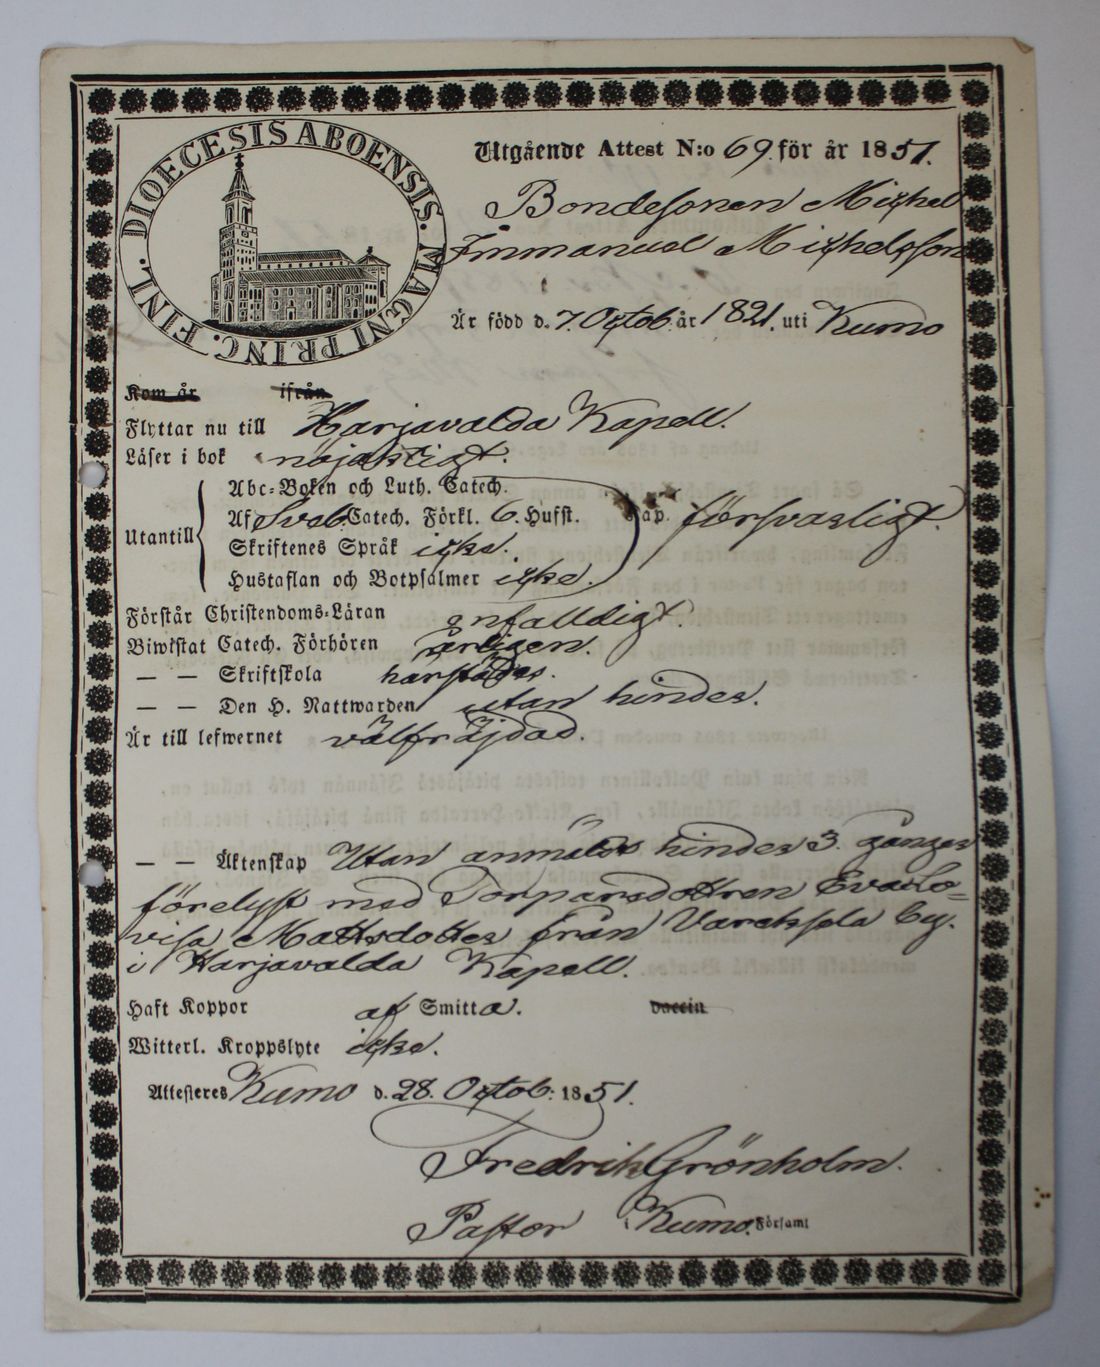 DIOECESIS ABOENSIS. MAGNI PRINC. FINL.
Utgående Attest N:o 69. för år 1851.
Bondesonen Michel
Immanuel Michelsson
Är född d. 7. Octob. år 1821. uti Kumo
Kom år ifrån
Flyttar nu till Harjavalda Kapell.
Läser i bok nöjaktigt.
Abc-Boken och Luth. Catech.
Utantill Af Sveb. Catech. Förkl. 6. Hufst. Cap. försvarligt.
Skriftenes Språk icke.
Hustaflan och Botpsalmer icke.
Förstår Christendoms-Läran enfalldigt
Biwistat Catech. Förhören årligen.
— — Skriftskola härstädes.
— — Den H. Nattwarden utan hinder.
Är till lefwernet välfräjdad.
— — Äktenskap Utan anmäldt hinder 3. gånger
förelyst med Torparedottren Eva Lo=
visa Mattsdotter från by.
i Harjavalda Kapell.
Haft Koppor af Smitta. vaccin
Witterl. Kroppslyte icke.
Attesteres Kumo d. 28. Octob: 1851.
Fredrik Grönholm.
Pastor i Kumo. Församl